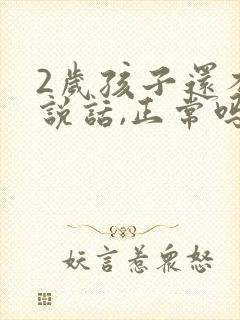 2歲孩子還
說話,正常嗎
妖言惹眾怒